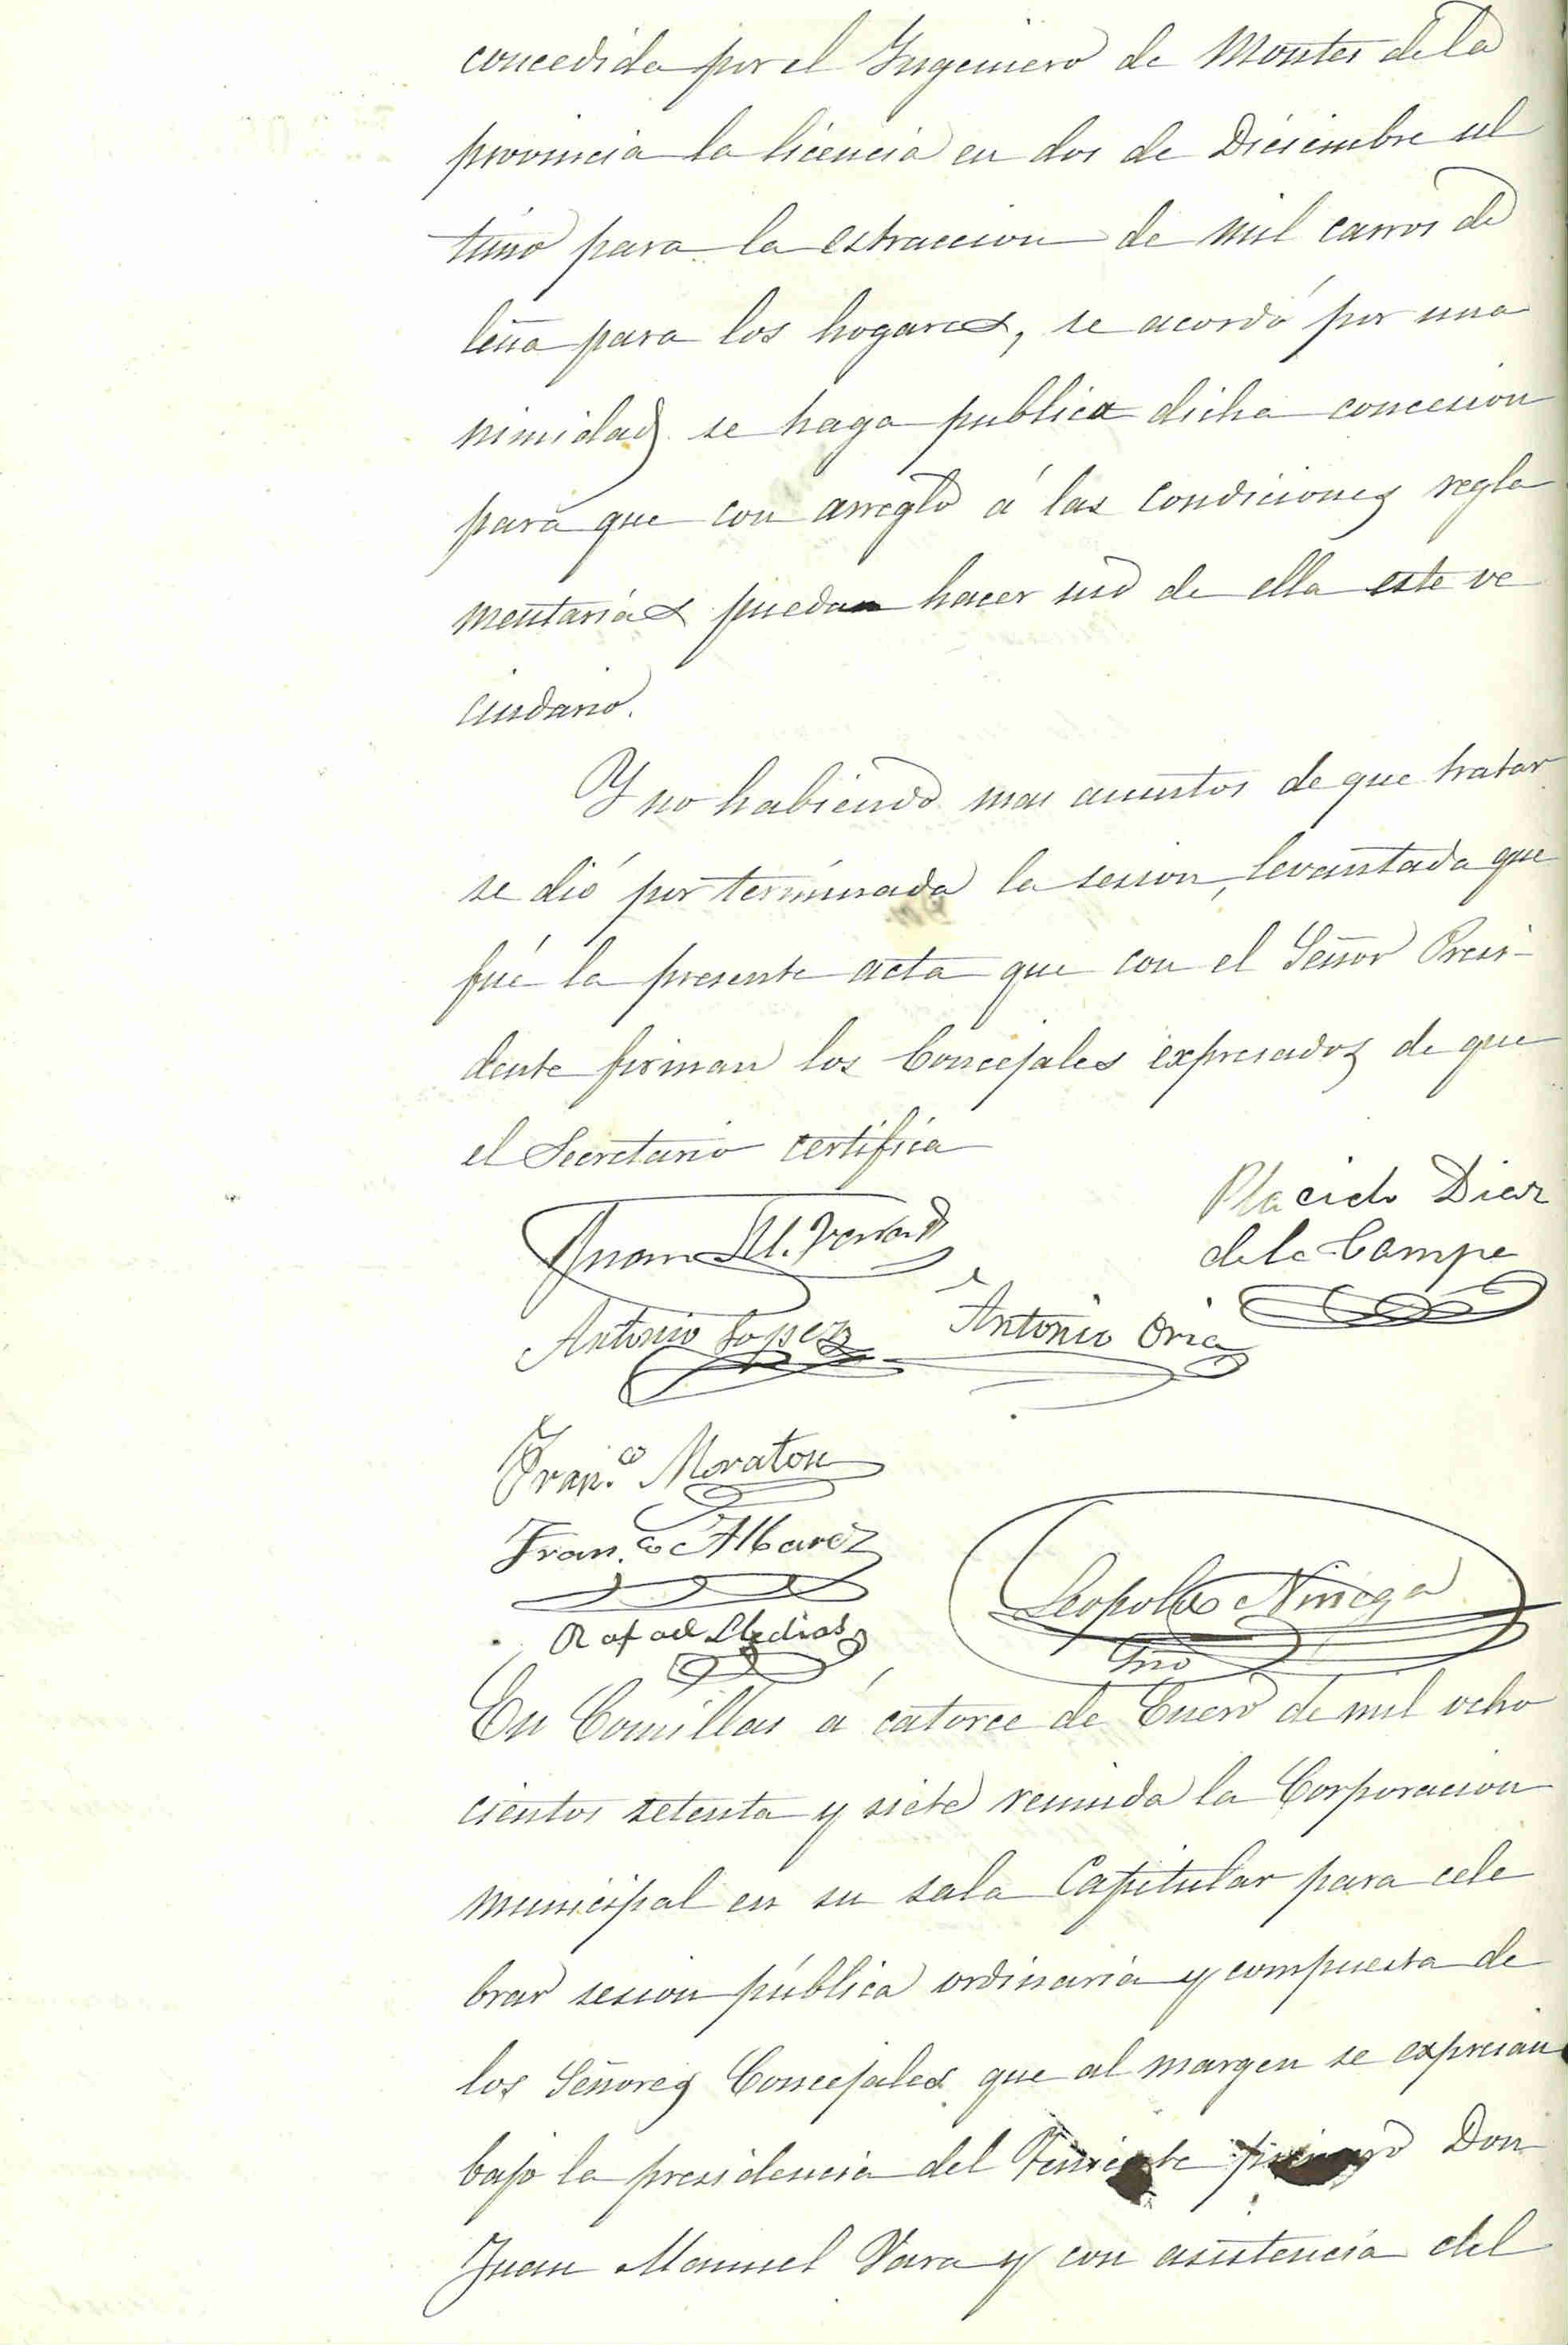 concedida por el Yngeniero de Montes de la
provincia la licencia en dos de Diciembre ul
timo para la estraccion de mil carros de
leña para los hogares, se acordó por una
nimidad se haga publica dicha concesion
para que con arreglo á las condiciones regla
mentarias puedan hacer uso de ella este ve
cindario.
Y no habiendo mas asuntos de que tratar
se dió por terminada la sesion, levantada que
fué la presente acta que con el Señor Presi-
dente firman los Concejales expresados de que
el Secretario certifica
Placido Diaz
de la Campa
Juan M.
Antonio Lopez Antonio Oria
Fran.co Moraton
Fran.co Albarez
Leopoldo
Rafael
Srio
En Comillas á catorce de Enero de mil ocho
cientos setenta y siete reunida la Corporacion
municipal en su sala Capitular para cele
brar sesion pública ordinaria y compuesta de
los Señores Concejales que al margen se expresan
bajo la presidencia del Teniente primero Don
Juan Manuel Vara y con asistencia del